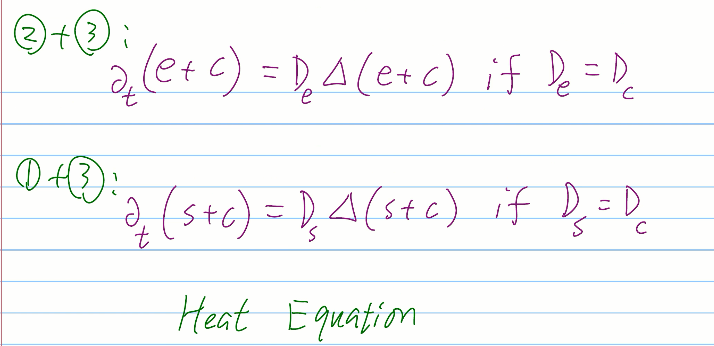 ②+③:
∂_t(e+c) = D_e Δ(e+c) if D_e = D_c
①+③:
∂_t(s+c) = D_s Δ(s+c) if D_s = D_c
Heat Equation